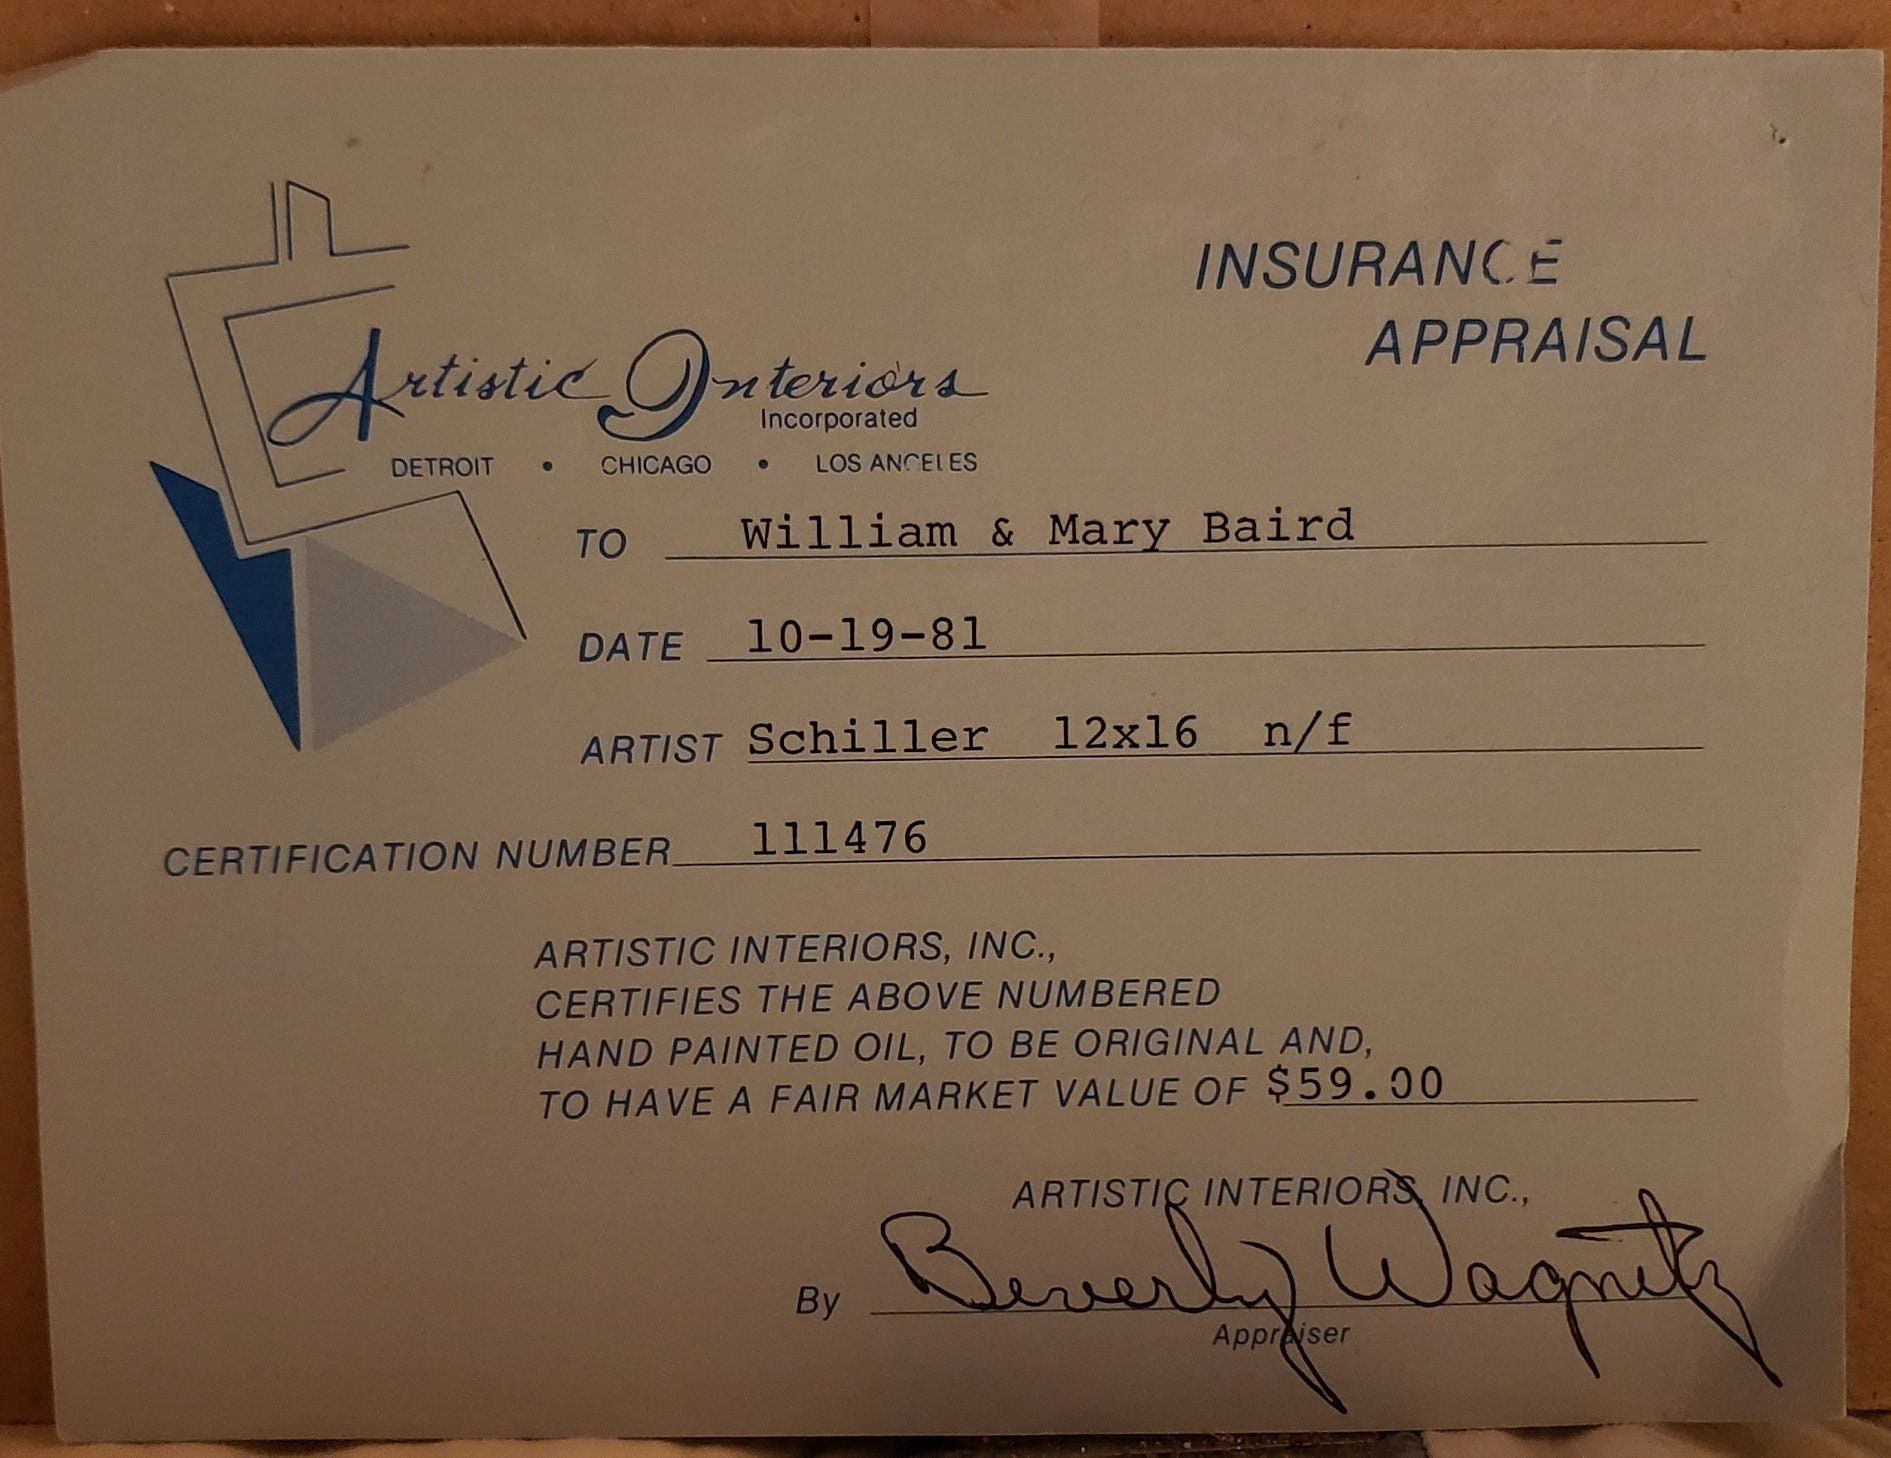 INSURANCE
APPRAISAL
Artistic Interiors
Incorporated
DETROIT • CHICAGO • LOS ANGELES
TO William & Mary Baird
DATE 10-19-81
ARTIST Schiller 12x16 n/f
CERTIFICATION NUMBER 111476
ARTISTIC INTERIORS, INC.,
CERTIFIES THE ABOVE NUMBERED
HAND PAINTED OIL, TO BE ORIGINAL AND,
TO HAVE A FAIR MARKET VALUE OF $59.00
ARTISTIC INTERIORS, INC.,
By Beverly Wagnitz
Appraiser